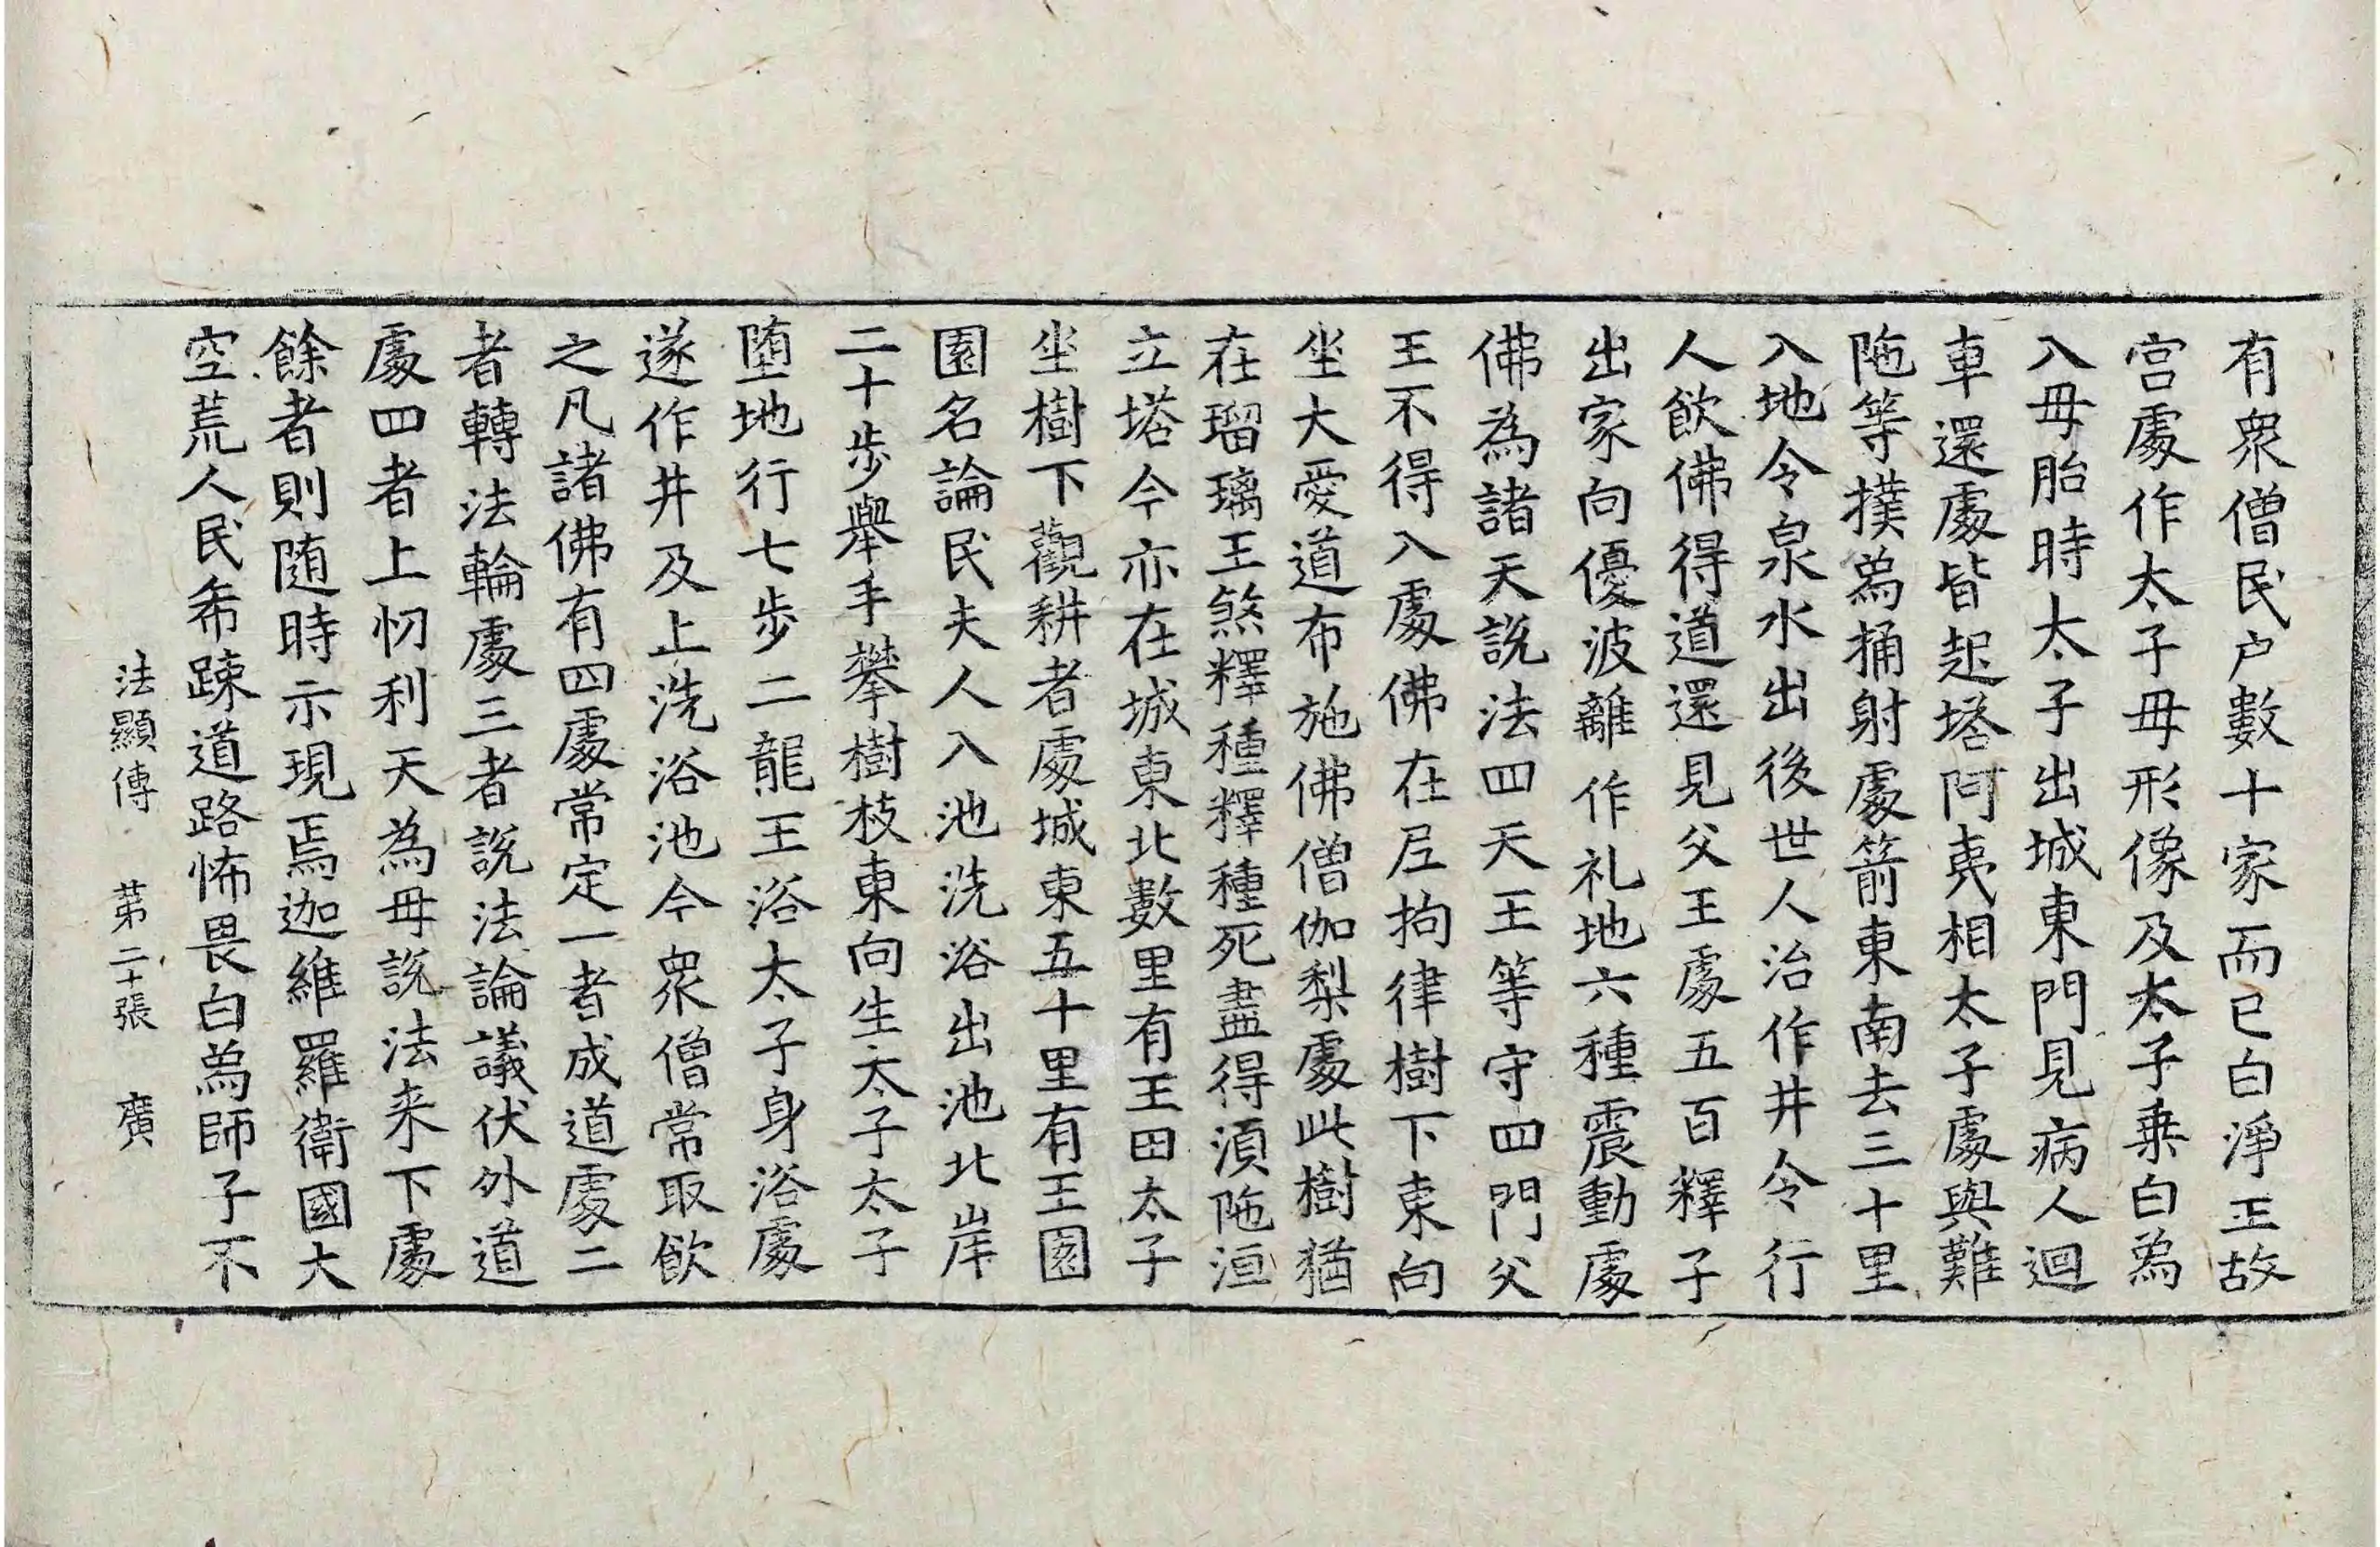 有衆僧民户數十家而已白淨王故
宫處作太子母形像及太子乗白爲
入母胎時太子出城東門見病人迴
車還處皆起塔阿夷相太子處與難
陁等撲爲捅射處箭東南去三十里
入地令泉水出後世人治作井令行
人飲佛得道還見父王處五百釋子
出家向優波離作礼地六種震動處
佛為諸天說法四天王等守四門父
王不得入處佛在尼拘律樹下東向
坐大愛道布施佛僧伽梨處此樹猶
在瑠璃王煞釋種釋種死盡得湏陁洹
立塔今亦在城東北數里有王田太子
坐樹下觀耕者處城東五十里有王園
園名論民夫人入池洗浴出池北岸
二十步舉手攀樹枝東向生太子太子
堕地行七步二龍王浴太子身浴處
遂作井及上洗浴池今衆僧常取飲
之凡諸佛有四處常定一者成道處二
者轉法輪處三者說法論議伏外道
處四者上忉利天為母說法来下處
餘者則随時示現焉迦維羅衛國大
空荒人民希踈道路怖畏白爲師子不
法顯傳 苐二十張 廣